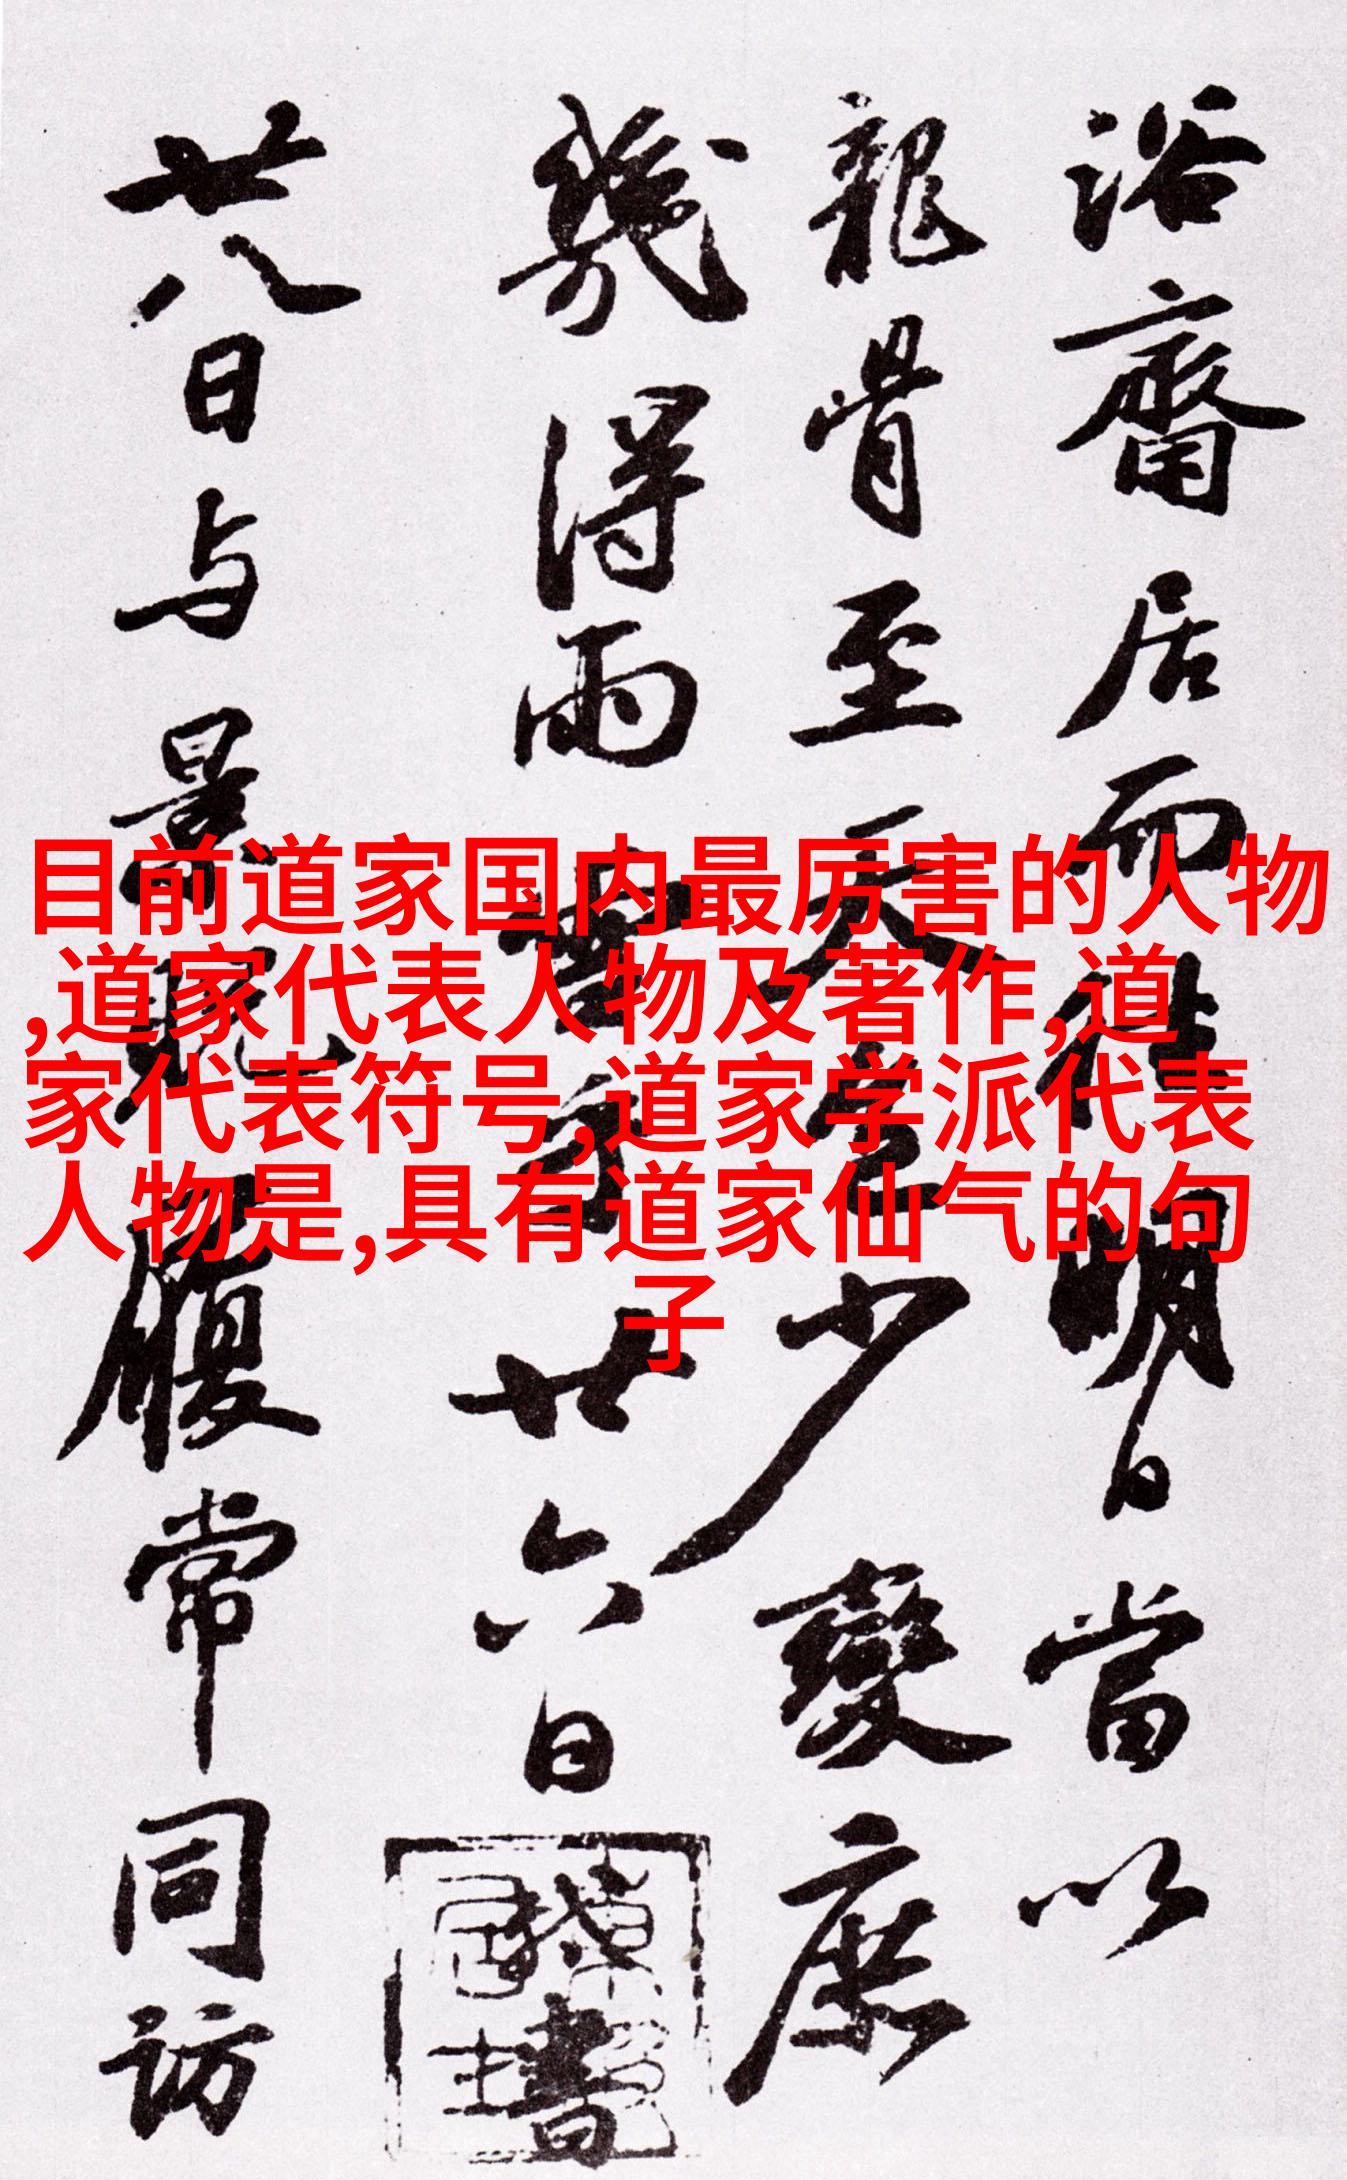 目前道家国内最厉害的人物
,道家代表人物及著作,道
家代表符号,道家学派代表
人物是,具有道家仙气的句
子
浴齋居而往明日當以
龍骨至天色少變庶
幾得雨雪乎廿六日
書
廿八日与景貺履常同訪